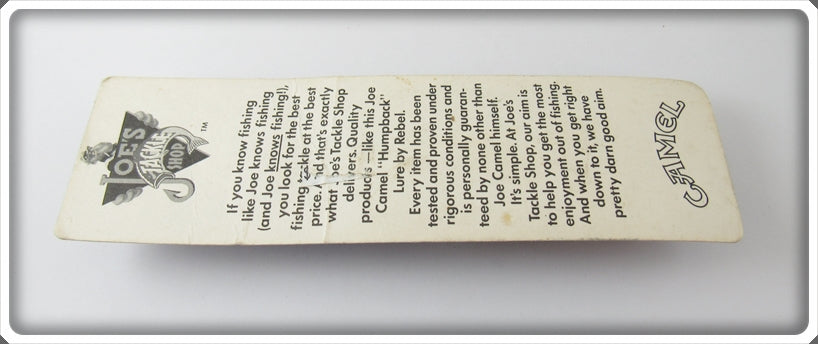 JOE'S
TACKLE
SHOP
TM
If you know fishing
like Joe knows fishing
(and Joe knows fishing!),
you look for the best
fishing tackle at the best
price. And that's exactly
what Joe's Tackle Shop
delivers. Quality
products—like this Joe
Camel "Humpback"
Lure by Rebel.
Every item has been
tested and proven under
rigorous conditions and
is personally guaran-
teed by none other than
Joe Camel himself.
It's simple. At Joe's
Tackle Shop, our aim is
to help you get the most
enjoyment out of fishing.
And when you get right
down to it, we have
pretty darn good aim.
CAMEL